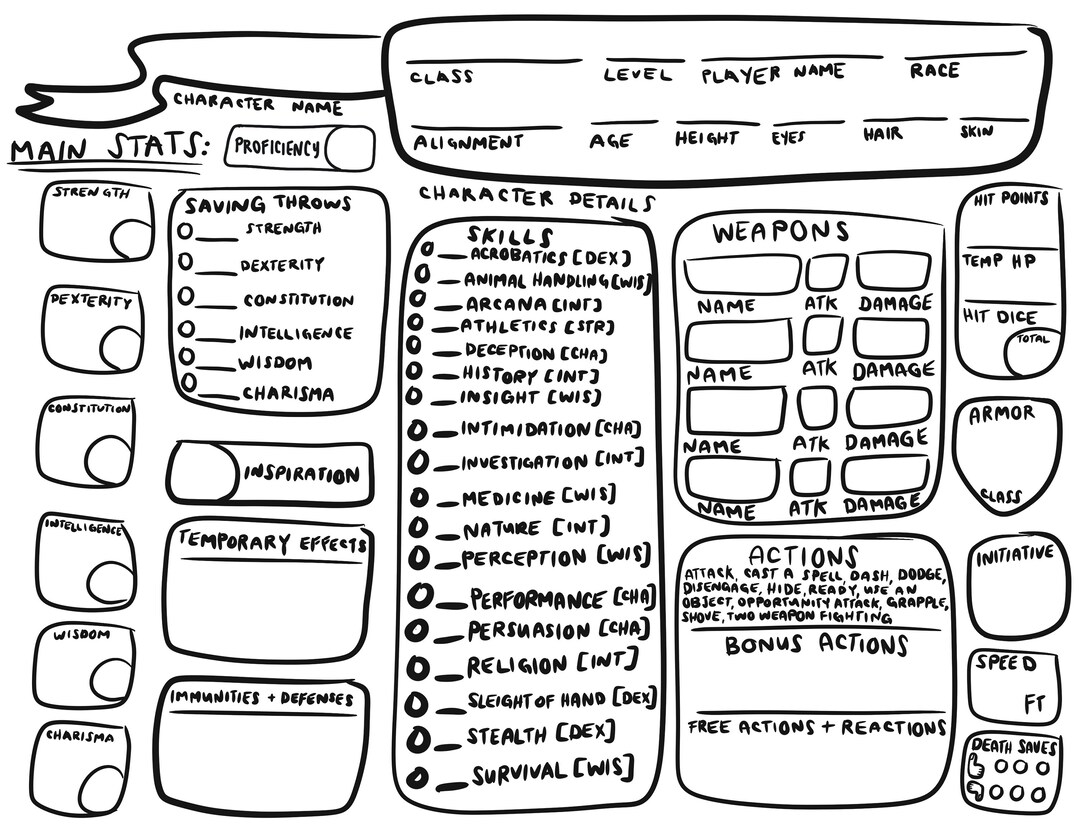 CLASS LEVEL PLAYER NAME RACE
CHARACTER NAME
ALIGNMENT AGE HEIGHT EYES HAIR SKIN
MAIN STATS:
PROFICIENCY
CHARACTER DETAILS
STRENGTH
DEXTERITY
CONSTITUTION
INTELLIGENCE
WISDOM
CHARISMA
SAVING THROWS
STRENGTH
DEXTERITY
CONSTITUTION
INTELLIGENCE
WISDOM
CHARISMA
INSPIRATION
TEMPORARY EFFECTS
IMMUNITIES + DEFENSES
SKILLS
ACROBATICS [DEX]
ANIMAL HANDLING [WIS]
ARCANA [INT]
ATHLETICS [STR]
DECEPTION [CHA]
HISTORY [INT]
INSIGHT [WIS]
INTIMIDATION [CHA]
INVESTIGATION [INT]
MEDICINE [WIS]
NATURE [INT]
PERCEPTION [WIS]
PERFORMANCE [CHA]
PERSUASION [CHA]
RELIGION [INT]
SLEIGHT OF HAND [DEX]
STEALTH [DEX]
SURVIVAL [WIS]
WEAPONS
NAME ATK DAMAGE
NAME ATK DAMAGE
NAME ATK DAMAGE
NAME ATK DAMAGE
ACTIONS
ATTACK, CAST A SPELL, DASH, DODGE,
DISENGAGE, HIDE, READY, USE AN
OBJECT, OPPORTUNITY ATTACK, GRAPPLE,
SHOVE, TWO WEAPON FIGHTING
BONUS ACTIONS
FREE ACTIONS + REACTIONS
HIT POINTS
TEMP HP
HIT DICE
TOTAL
ARMOR
CLASS
INITIATIVE
SPEED
FT
DEATH SAVES